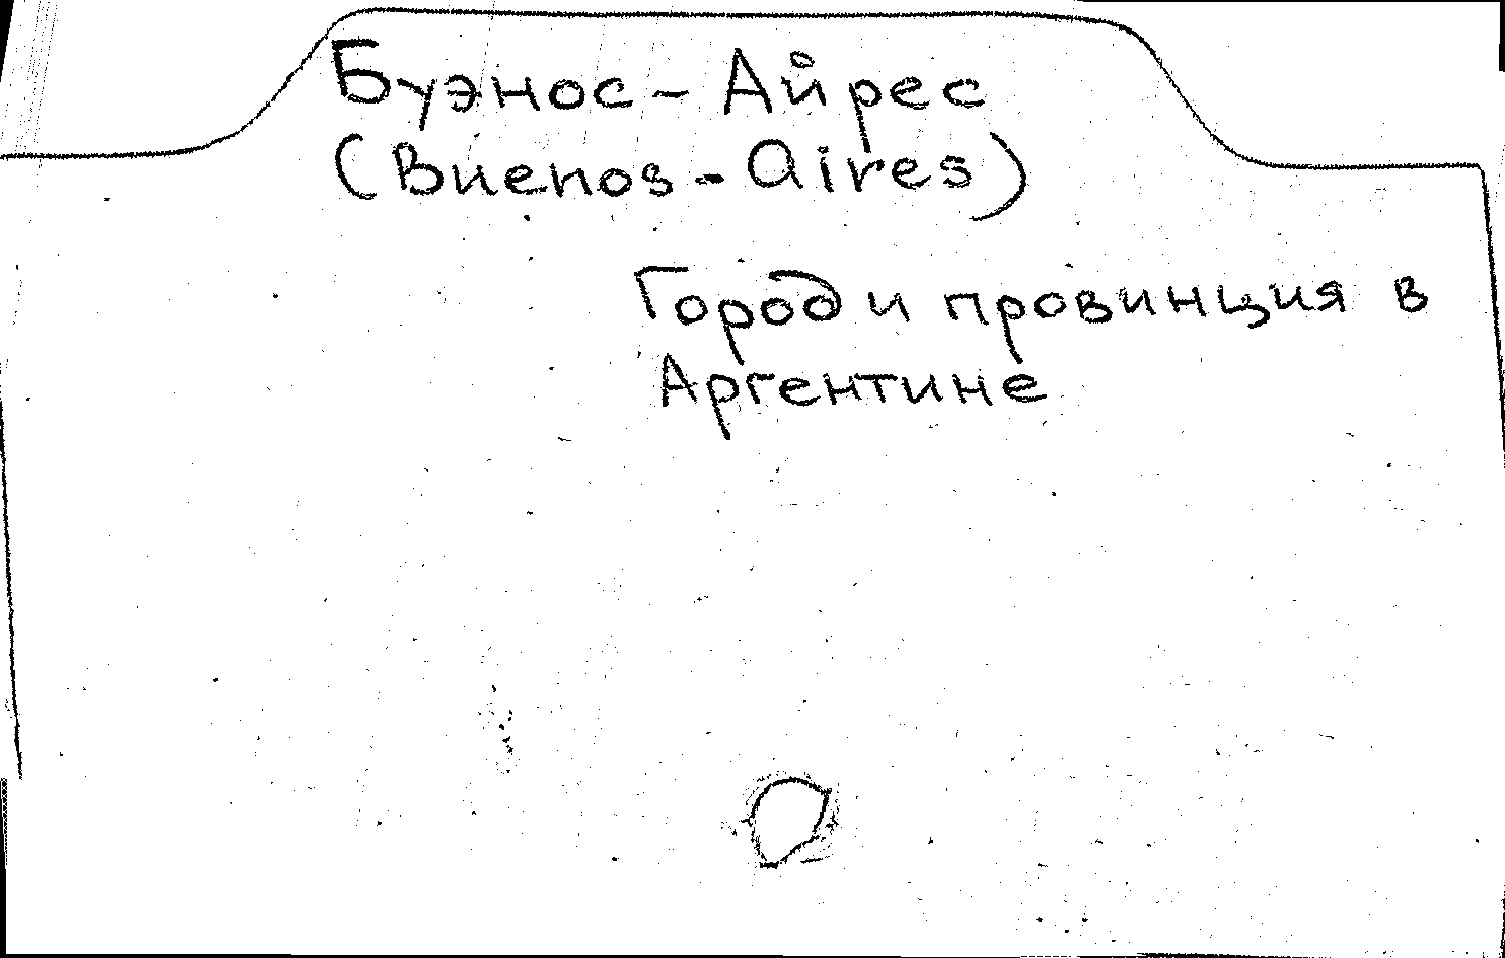 Буэнос-Айрес
(Buenos-Aires)
Город и провинция в
Аргентине